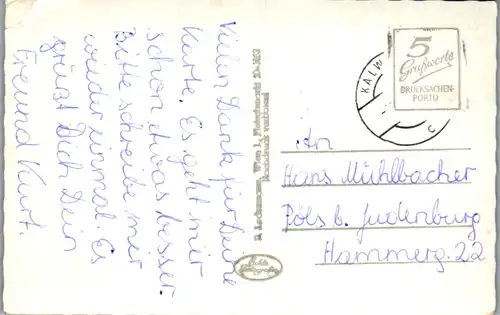 Vielen Dank für Deine
Karte. Es geht mir
schon etwas besser.
Bitte schreibe mir
wieder einmal. Es
grüßt Dich Dein
Freund Kurt.
Wien I., Fleischmarkt
Nachdruck verboten!
5
Grußworte
DRUCKSACHEN-
PORTO
KALW
c
An
Hans Mühlbacher
Pöls b. Judenburg
Hammerg. 22